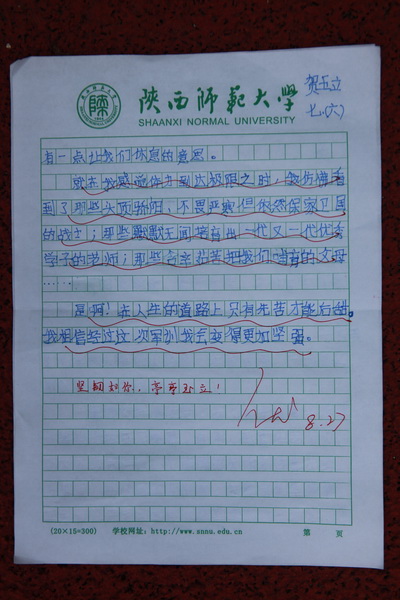 陕西师范大学
SHAANXI NORMAL UNIVERSITY
贺玉立
七.(六)
有一点让我们休息的意思。
就在我感觉体力到达极限之时，我仿佛看
到了那些头顶骄阳，不畏严寒但依然保家卫国
的战士；那些默默无闻培育出一代又一代优秀
学子的老师；那些含辛茹苦把我们哺育的父母
……
是啊！在人生的道路上只有先苦才能后甜。
我相信经过这次军训我会变得更加坚强。
坚韧如你，亭亭玉立！
8.27
(20×15=300)
学校网址：http://www.snnu.edu.cn
第 页